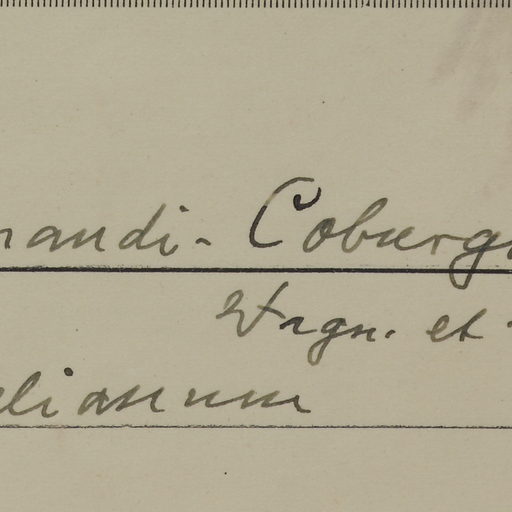 nandi-Coburgi
Wagn. et
elianum